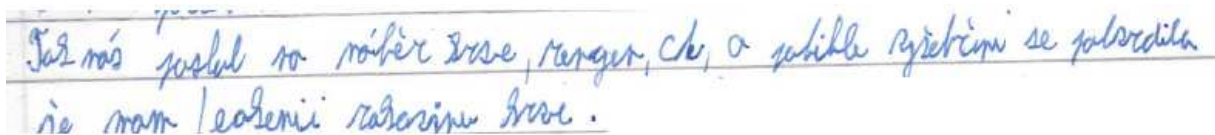 Tak nás poslal na náběr krve, rengen, ct, a jakitile vyšetřením se potvrdila
že mam leokemii rakovinu krve.